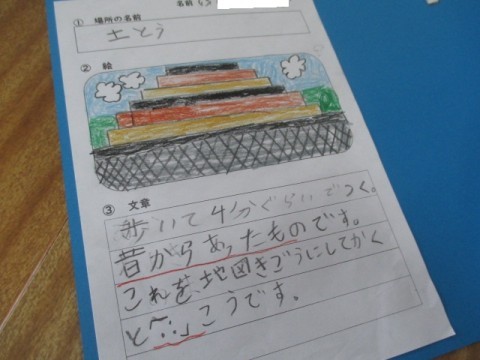 名前
① 場所の名前
土とう
② 絵
③ 文章
歩いて4分ぐらいでつく。
昔からあったものです。
これを、地図きごうにしてかく
と「∴」こうです。